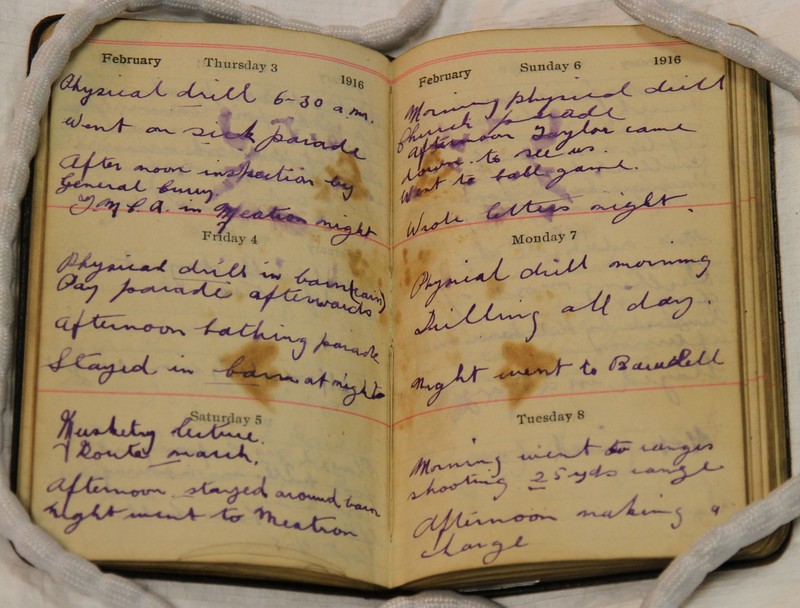 February Thursday 3 1916
Physical drill 6-30 a.m.
Went on sick parade
After noon inspection by
General
Y.M.C.A. in night
Friday 4
Physical drill in barn (rain)
Pay parade afterwards
Afternoon bathing parade
Stayed in barn at night
Saturday 5
Musketry lecture.
Route march.
Afternoon stayed around barn
Night went to Meation
February Sunday 6 1916
Morning physical drill
Church parade
Afternoon Taylor came
down to see us.
Went to ball game.
Wrote letters night.
Monday 7
Physical drill morning
Drilling all day.
Night went to
Tuesday 8
Morning went to ranges
shooting 25 yds range
Afternoon making a
charge